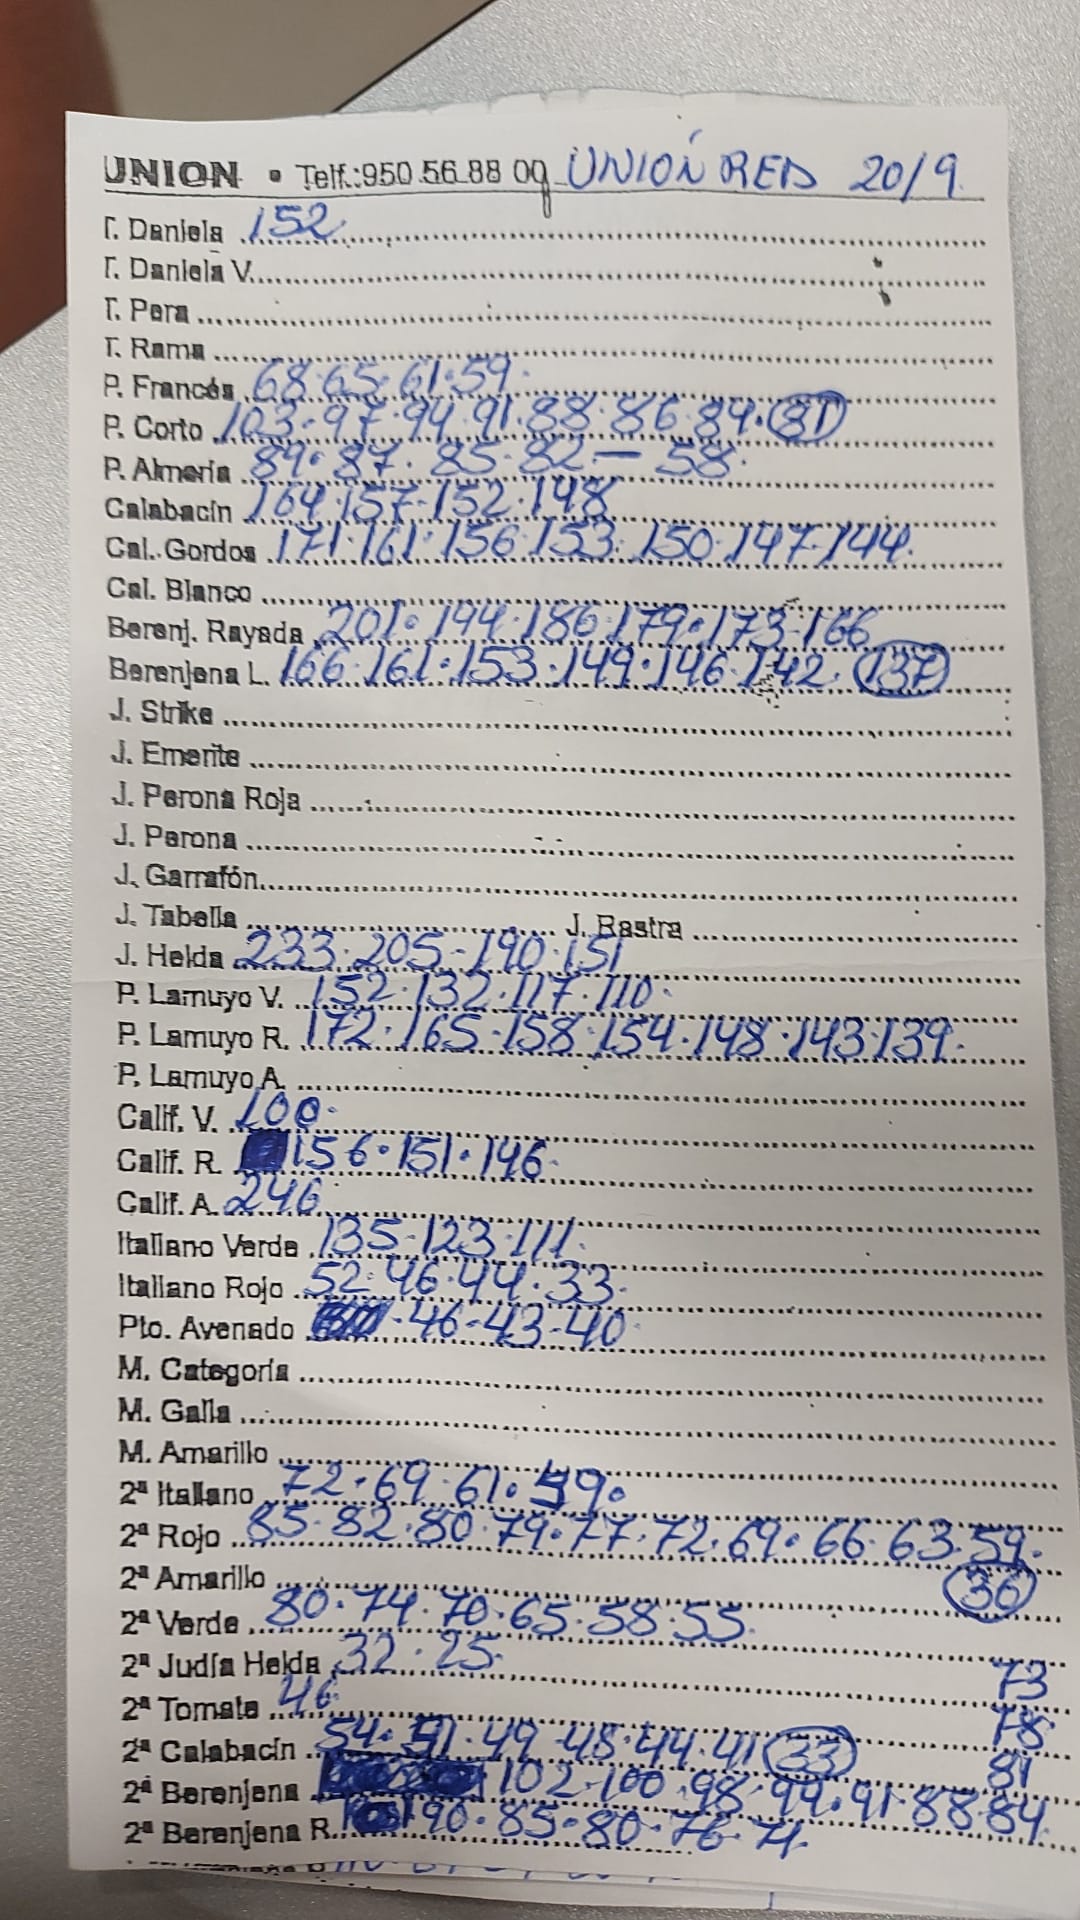 UNION • Telf.:950 56 88 09 UNIÓN RED 20/9
T. Daniela 152
T. Daniela V.
T. Pera
T. Rama
P. Francés 68·65·61·59·
P. Corto 103·97·94·91·88·86·84·81
P. Almería 89·87·85·82—58·
Calabacín 164·157-152·148
Cal. Gordos 171·161·156·153·150·147·144·
Cal. Blanco
Berenj. Rayada 201·194·186·179·173·166
Berenjena L. 166·161·153·149·146·142·137
J. Strike
J. Emerite
J. Perona Roja
J. Perona
J. Garrafón
J. Tabella J. Rastra
J. Helda 233·205-190·151
P. Lamuyo V. 152·132·117·110·
P. Lamuyo R. 172·165·158·154·148·143·139·
P. Lamuyo A.
Calif. V. 100·
Calif. R. 156·151·146·
Calif. A. 246
Italiano Verde 135-123·111·
Italiano Rojo 52·46·44·33·
Pto. Avenado -46-43-40·
M. Categoría
M. Galia
M. Amarillo
2ª Italiano 72·69·61·59·
2ª Rojo 85·82·80·79·77·72·69·66·63·59·
2ª Amarillo 36
2ª Verde 80·74·70·65·58·55
2ª Judía Helda 32·25· 73
2ª Tomate 46 78
2ª Calabacín 54·51·49-48·44·41 33 81
2ª Berenjena 102-100·98·94·91·88·84
2ª Berenjena R. 90·85·80·76·71